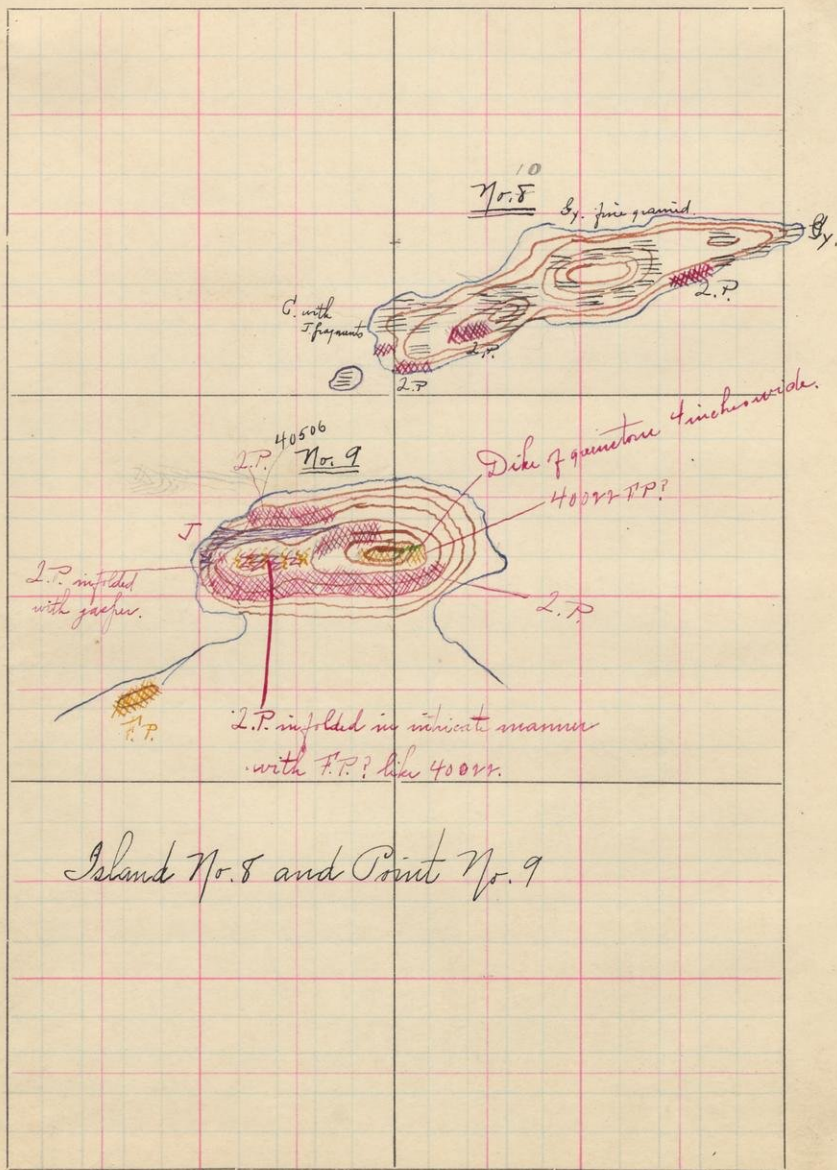 10
No. 8
Gy. fine grained.
Gy.
2.P.
C. with
J. fragments
2.P.
2.P
40506
2.P.
No. 9
Dike of greenstone 4 inches wide.
400 F.P.?
J
2.P. infolded
with jasper.
2.P.
F.P.
2.P. infolded in intricate manner
with F.P.? like 400
Island No. 8 and Point No. 9